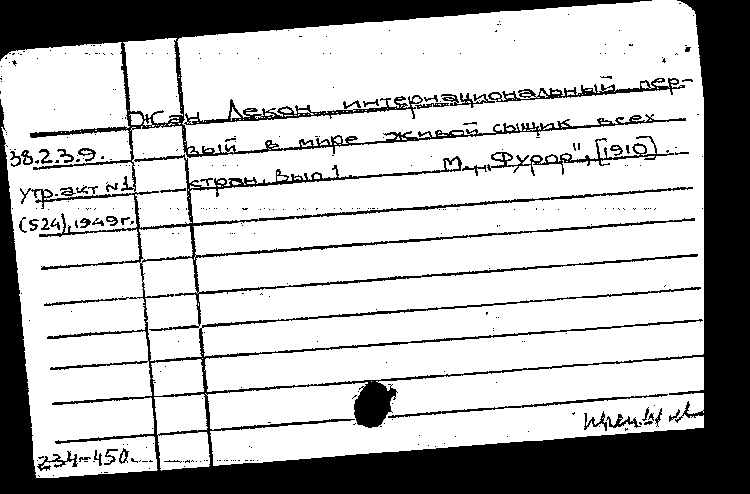 Жан Лекон, интернациональный пер-
38.2.3.9. вый в мире живой сыщик всех
утр. акт №1 стран. Вып. 1. М., „Фурор", [1910].
(524), 1949г.
234-450.